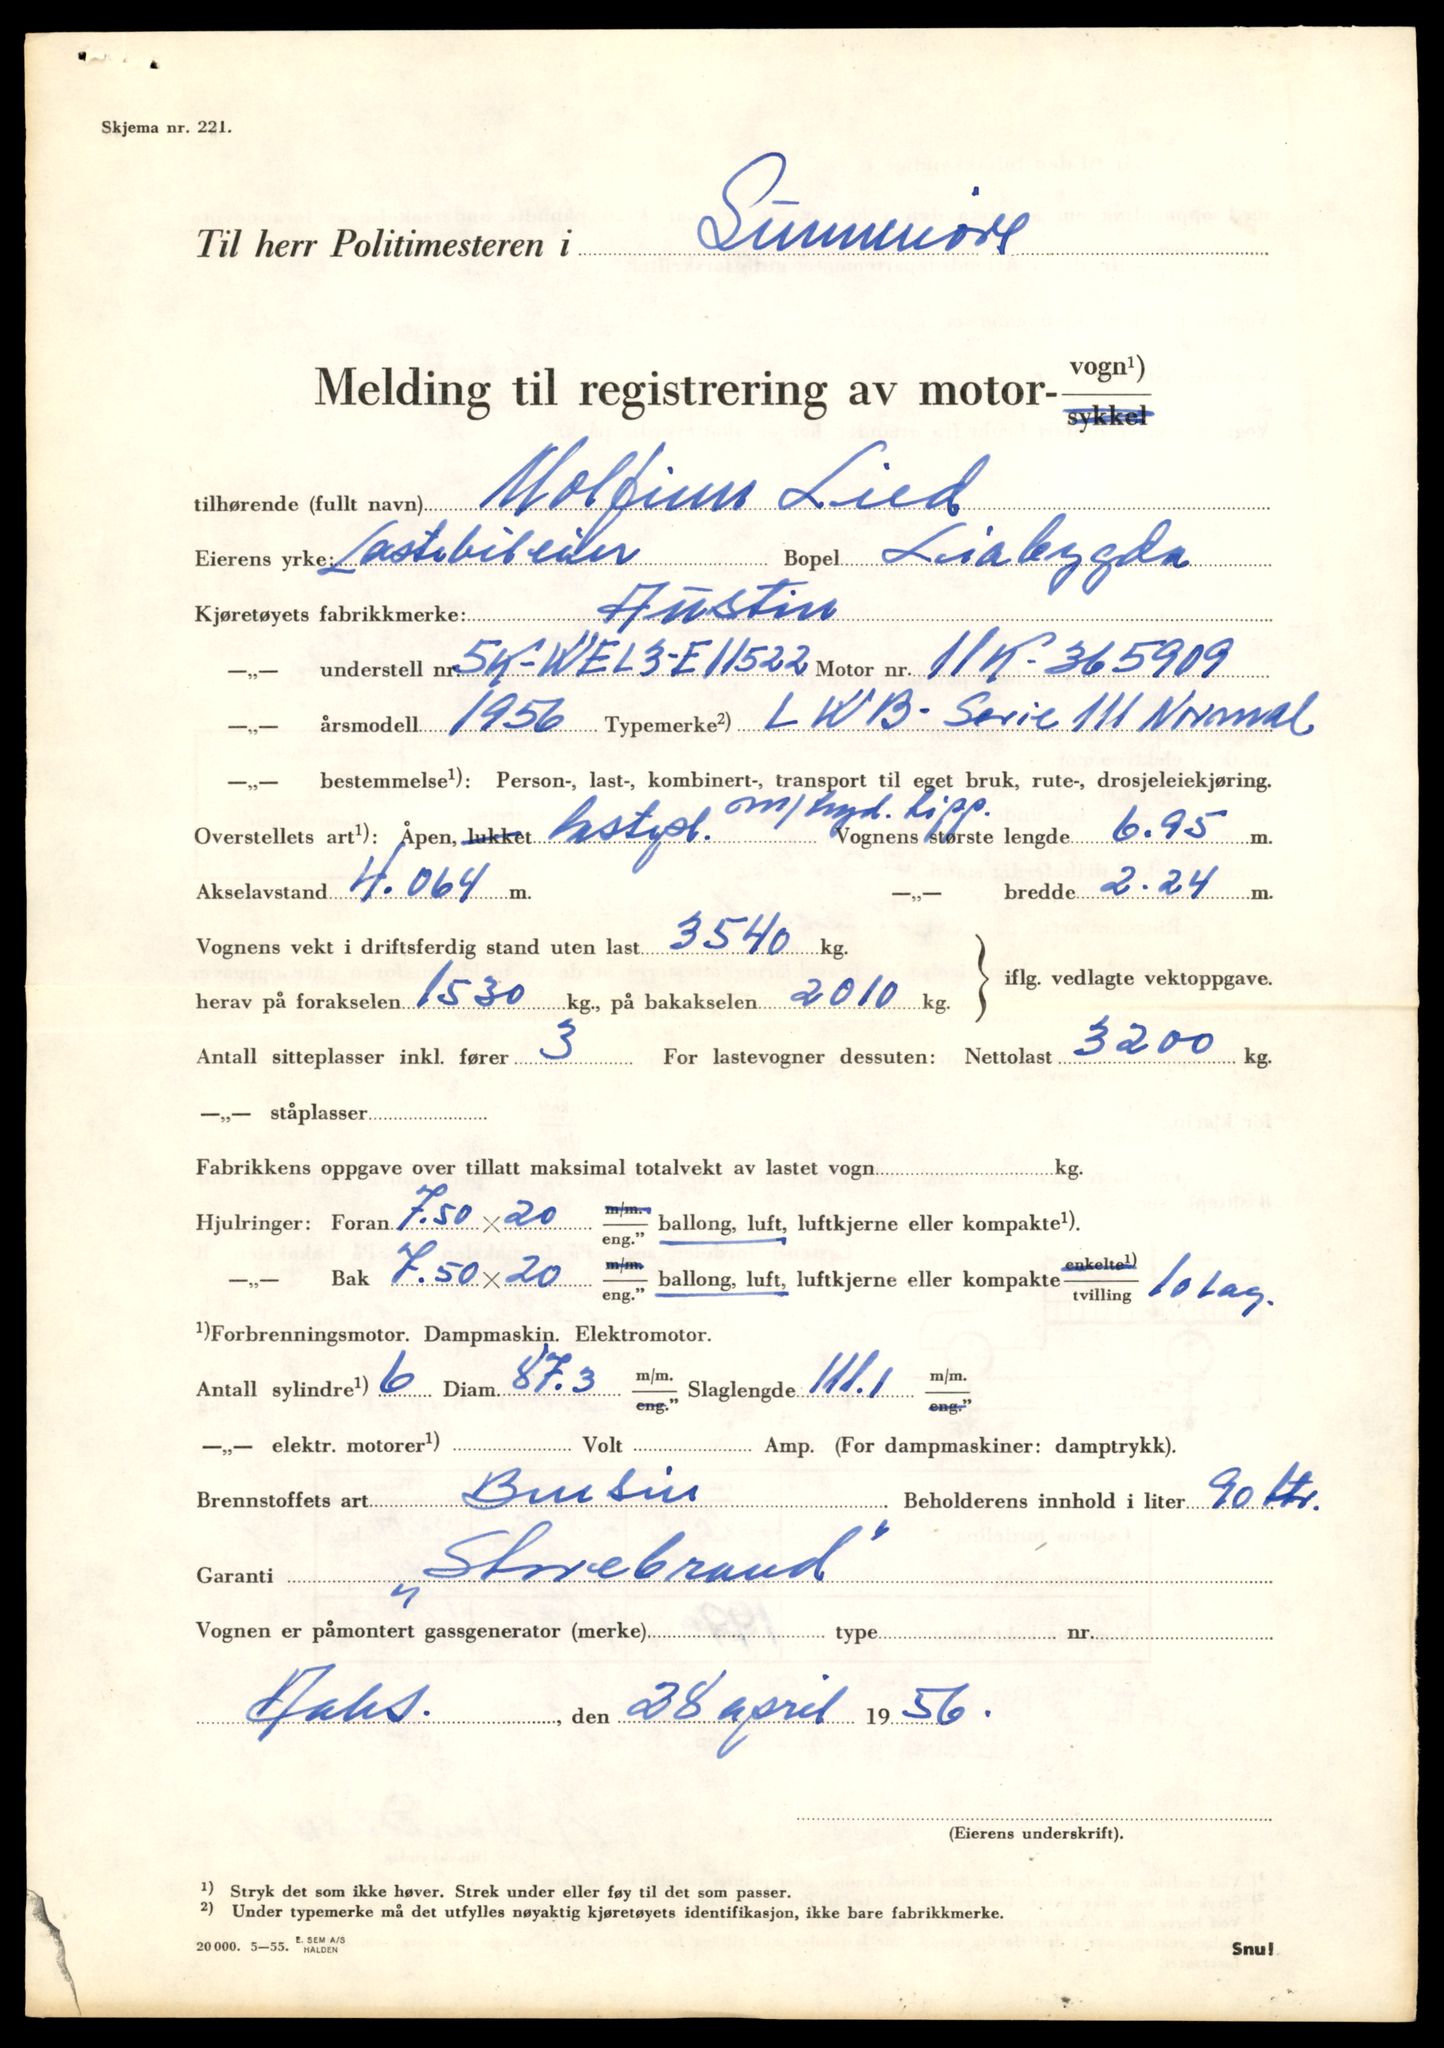 Skjema nr. 221.
Til herr Politimesteren i Sunnmøre
Melding til registrering av motor- vogn¹)
sykkel
tilhørende (fullt navn) Lied
Eierens yrke: Lastebileier Bopel Liabygda
Kjøretøyets fabrikkmerke: Austin
—„— understell nr. 5K-WEL3-E11522 Motor nr. 11K-365909
—„— årsmodell 1956 Typemerke²) LWB-Serie III Normal
—„— bestemmelse¹): Person-, last-, kombinert-, transport til eget bruk, rute-, drosjeleiekjøring.
Overstellets art¹): Åpen, lukket lastepl. m/hyd. tipp. Vognens største lengde 6.95 m.
Akselavstand 4.064 m. —„— bredde 2.24 m.
Vognens vekt i driftsferdig stand uten last 3540 kg.
herav på forakselen 1530 kg., på bakakselen 2010 kg. iflg. vedlagte vektoppgave.
Antall sitteplasser inkl. fører 3 For lastevogner dessuten: Nettolast 3200 kg.
—„— ståplasser
Fabrikkens oppgave over tillatt maksimal totalvekt av lastet vogn kg.
Hjulringer: Foran 7.50 × 20 m/m. eng.” ballong, luft, luftkjerne eller kompakte¹).
—„— Bak 7.50 × 20 m/m. eng.” ballong, luft, luftkjerne eller kompakte enkelte¹) tvilling 10 lag.
¹)Forbrenningsmotor. Dampmaskin. Elektromotor.
Antall sylindre¹) 6 Diam. 87.3 m/m. eng.” Slaglengde 111.1 m/m. eng.”
—„— elektr. motorer¹) Volt Amp. (For dampmaskiner: damptrykk).
Brennstoffets art Bensin Beholderens innhold i liter 90 ltr.
Garanti „Storebrand”
Vognen er påmontert gassgenerator (merke) type nr.
, den 28 april 1956.
(Eierens underskrift).
¹) Stryk det som ikke høver. Strek under eller føy til det som passer.
²) Under typemerke må det utfylles nøyaktig kjøretøyets identifikasjon, ikke bare fabrikkmerke.
20 000. 5—55. E. SEM A/S HALDEN
Snu!